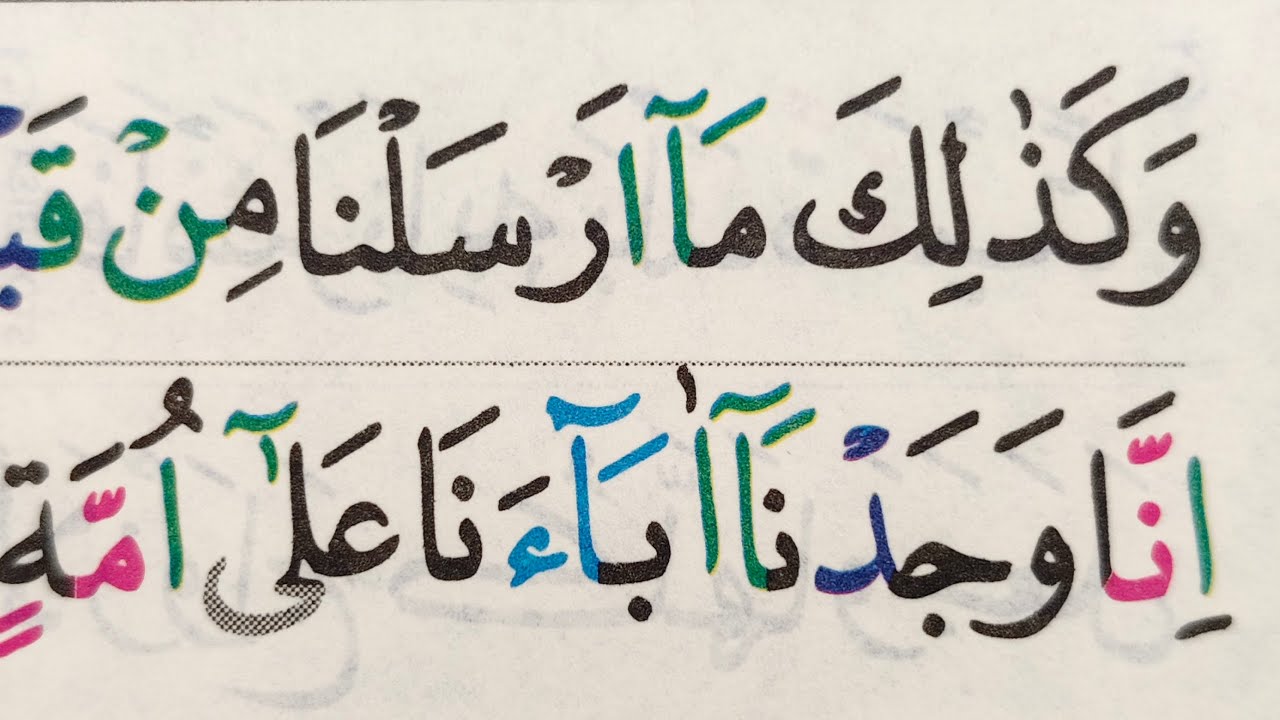 وَكَذٰلِكَ مَآ اَرْسَلْنَا مِنْ
اِنَّا وَجَدْنَآ اٰبَآءَنَا عَلٰٓى اُمَّةٍ